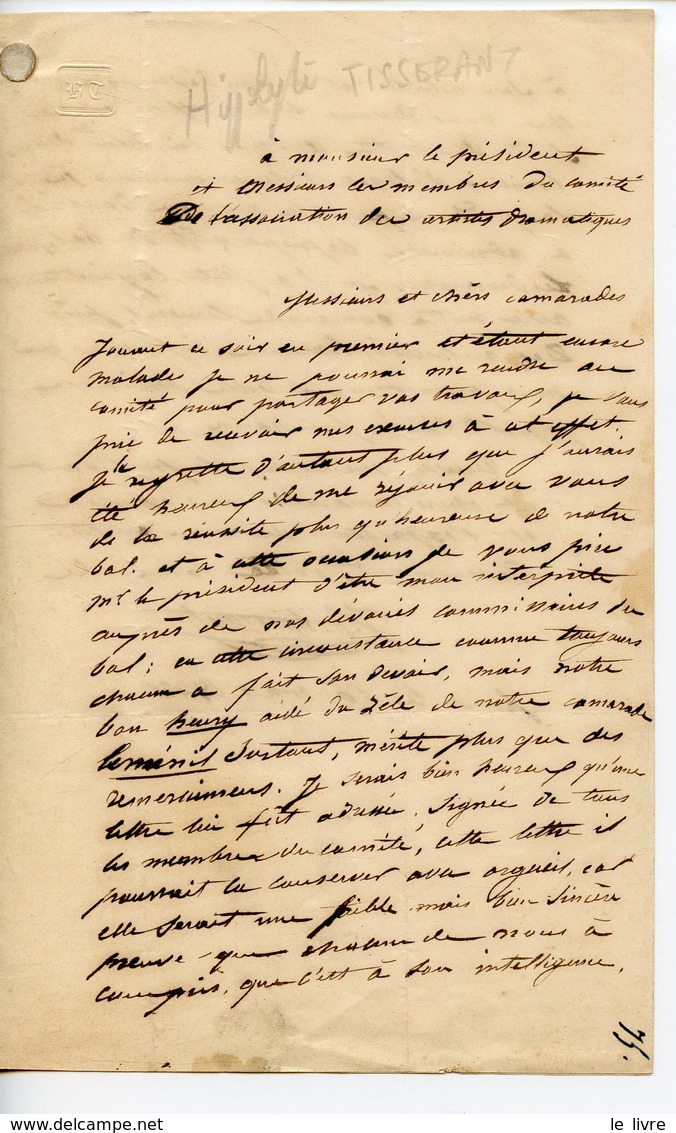 HT
Hippolyte TISSERANT
à monsieur le président
et Messieurs les membres du comité
De l'association des artistes dramatiques
Messieurs et chers camarades
Jouant ce soir en premier et étant encore
malade je ne pourrai me rendre au
comité pour partager vos travaux, je vous
prie de recevoir mes excuses à cet effet.
je le regrette d'autant plus que j'aurais
été heureux de me réjouir avec vous
de la réussite plus qu'heureuse de notre
bal. et à cette occasion je vous prie
Mr le président d'être mon interprète
auprès de nos dévoués commissaires du
bal; en cette circonstance comme toujours
chacun a fait son devoir, mais notre
bon henry aidé du zèle de notre camarade
lemènil surtout, mérite plus que des
remerciemens. Je serais bien heureux qu'une
lettre lui fût adressée, signée de tous
les membres du comité, cette lettre il
pourrait la conserver avec orgueil, car
elle serait une faible mais bien sincère
preuve que chacun de nous à
compris, que c'est à son intelligence,
le livre